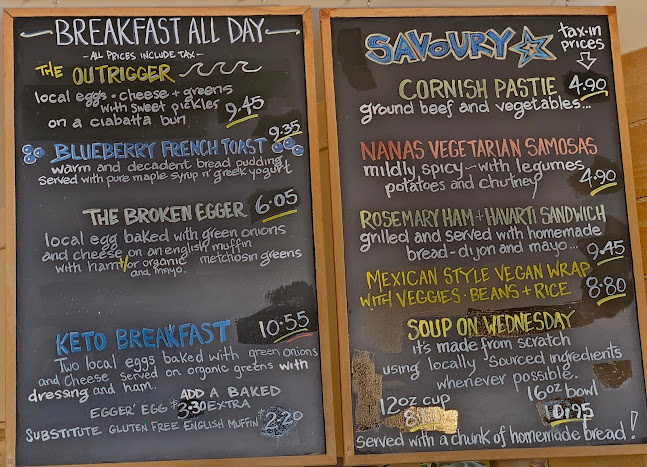 BREAKFAST ALL DAY
- ALL PRICES INCLUDE TAX -
THE OUTRIGGER
local eggs · cheese + greens
with sweet pickles
on a ciabatta bun 9.45
BLUEBERRY FRENCH TOAST 9.35
warm and decadent bread pudding
served with pure maple syrup n' greek yogurt
THE BROKEN EGGER 6.05
local egg baked with green onions
and cheese on an english muffin
with ham or organic metchosin greens
and mayo.
KETO BREAKFAST 10.55
Two local eggs baked with green onions
and cheese served on organic greens with
dressing and ham.
ADD A BAKED
EGGER' EGG 3.30 EXTRA
SUBSTITUTE GLUTEN FREE ENGLISH MUFFIN 2.20
SAVOURY
tax-in
prices
CORNISH PASTIE 4.90
ground beef and vegetables...
NANAS VEGETARIAN SAMOSAS
mildly spicy - with legumes
potatoes and chutney 4.90
ROSEMARY HAM + HAVARTI SANDWICH
grilled and served with homemade
bread - dijon and mayo... 9.45
MEXICAN STYLE VEGAN WRAP
WITH VEGGIES · BEANS + RICE 8.80
SOUP ON WEDNESDAY
it's made from scratch
using locally sourced ingredients
whenever possible.
12oz cup 16oz bowl
10.95
served with a chunk of homemade bread!